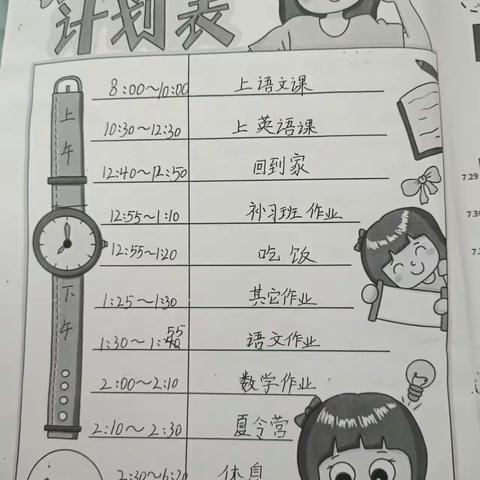 计划表
8:00~10:00 上语文课
10:30~12:30 上英语课
12:40~12:50 回到家
12:55~1:10 补习班作业
12:55~1:20 吃饭
1:25~1:30 其它作业
1:30~1:55 语文作业
2:00~2:10 数学作业
2:10~2:30 夏令营
2:30~6:20 休息
上午
下午
7.29
7.30